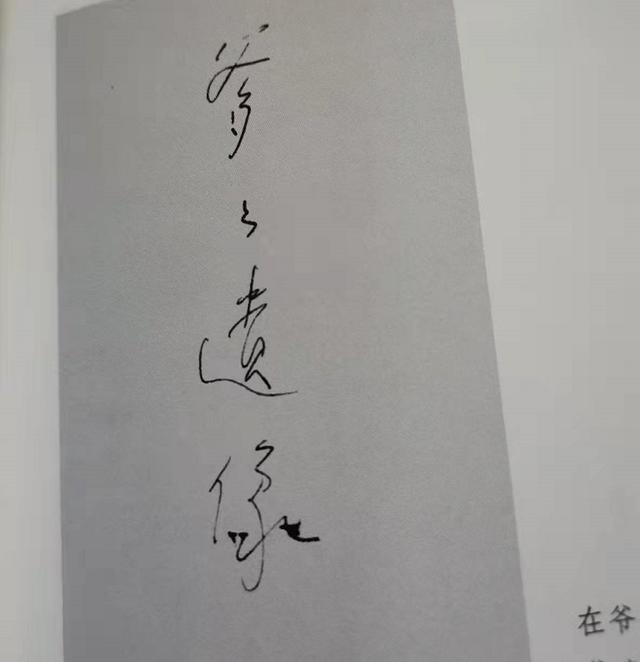 爷々遗像
在爷